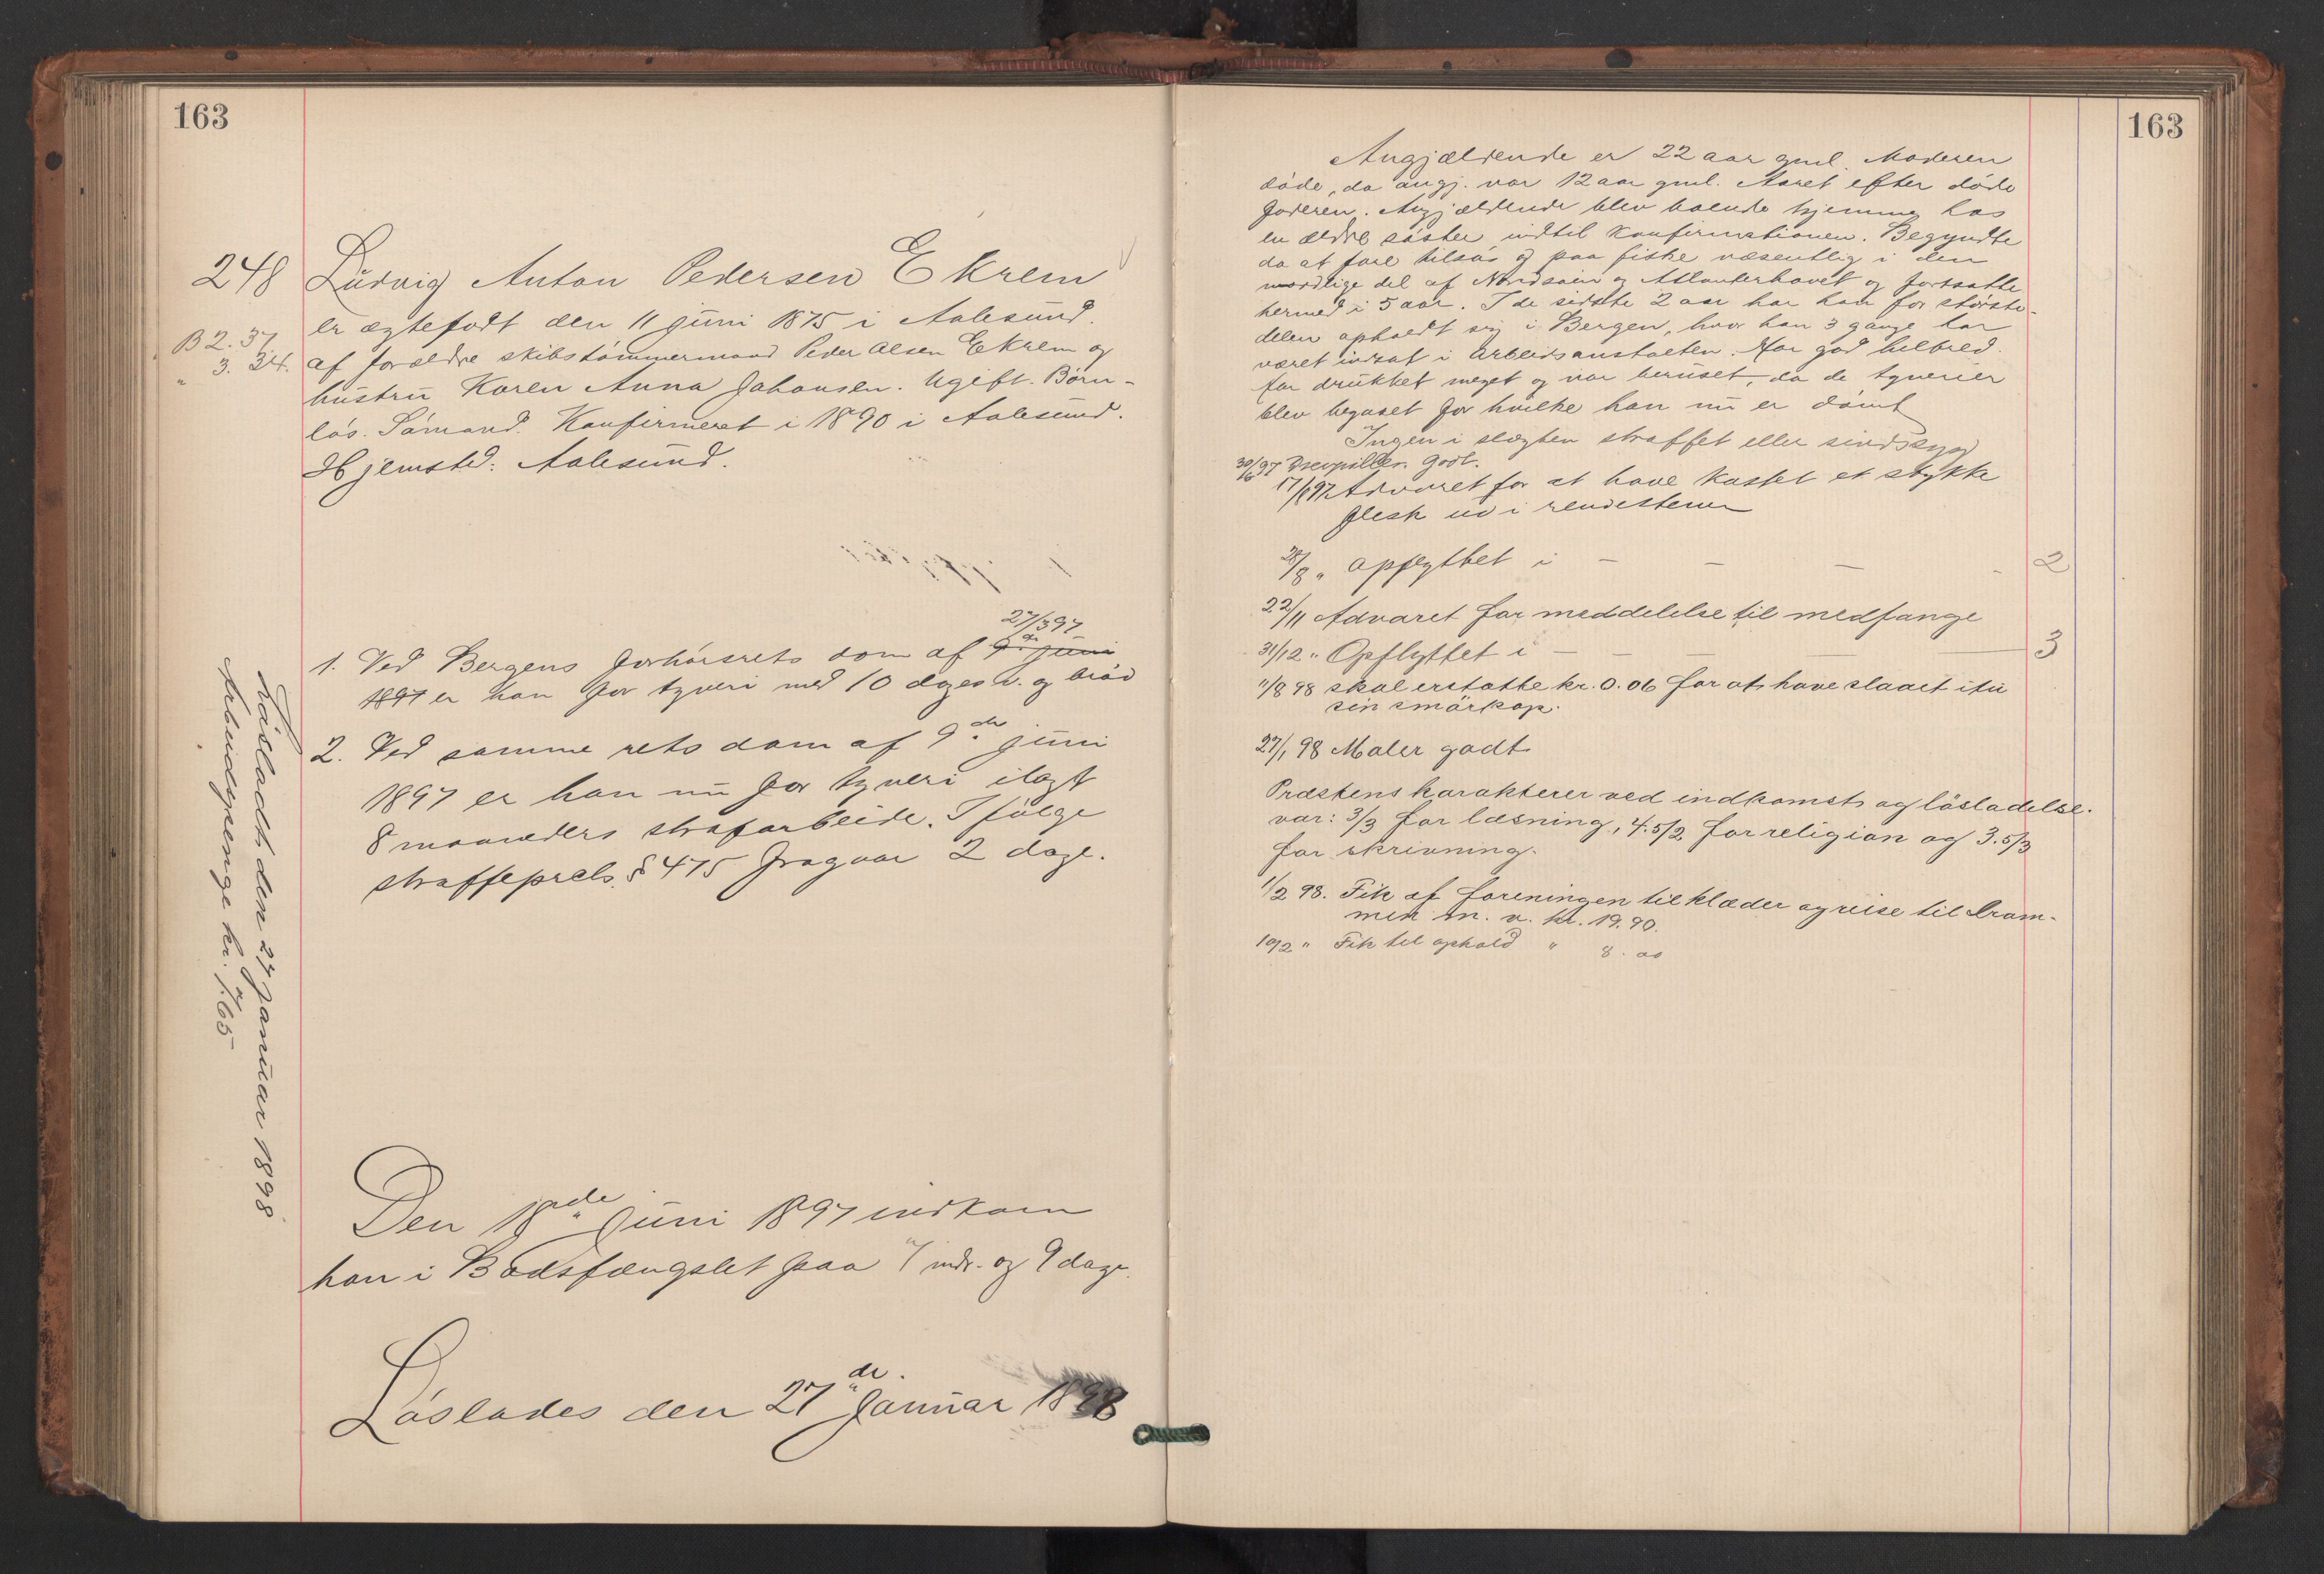 163
248 Ludvig Anton Pedersen Ekrem
er ægtefødt den 11 juni 1875 i Aalesund.
B 2. 37
" 3. 34.
af forældre skibstømmermand Peder Olsen Ekrem og
hustru Karen Anna Johansen. Ugift. Børn-
løs. Sømand. Konfirmeret i 1890 i Aalesund.
Hjemsted: Aalesund.
27/3 97
1. Ved Bergens forhørsrets dom af 9de juni
1897 er han for tyveri med 10 dages v. og brød
2. Ved samme rets dom af 9de juni
1897 er han nu for tyveri ilagt
8 maaneders strafarbeide. Ifølge
straffeprcls. § 475 fragaar 2 dage.
Løsladt den 27 januar 1898
Arbeidspenge kr. 7.65
Den 18de Juni 1897 indkom
han i Bodsfængslet paa 7 mdr. og 9 dage.
Løslades den 27de Januar 1898
163
Angjældende er 22 aar gml. Moderen
døde, da angj. var 12 aar gml. Aaret efter døde
faderen. Angjældende blev boende hjemme hos
en ældre søster indtil konfirmationen. Begyndte
da at fare tilsøs og paa fiske væsentlig i den
nordlige del af Nordsøen og Atlanterhavet og fortsatte
hermed i 5 aar. I de sidste 2 aar har han for største-
delen opholdt sig i Bergen, hvor han 3 gange har
været indsat i arbeidsanstalten. Har god helbred.
Har drukket meget og var beruset, da de tyverier
blev begaaet for hvilke han nu er dømt
Ingen i slægten straffet eller sindssyg
30/6 97 Drevpiller. Godt.
17/8 97 Advaret for at have kastet et stykke
flesk ud i rendestenen
28/8 " opflyttet i - - - - 2
22/11 Advaret for meddelelse til medfange
31/12 " Opflyttet i - - - - 3
11/8 98 skal erstatte kr. 0.06 for at have slaaet itu
sin smørkop.
27/1 98 Maler godt
Præstens karakterer ved indkomst og løsladelse
var: 3/3 for læsning, 4.5/2 for religion og 3.5/3
for skrivning.
1/2 98. Fik af foreningen til klæder og reise til Dram-
men m. v. kr. 19.90.
10/2 " Fik til ophold " 8. oo